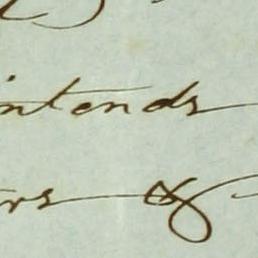 intends
rs &